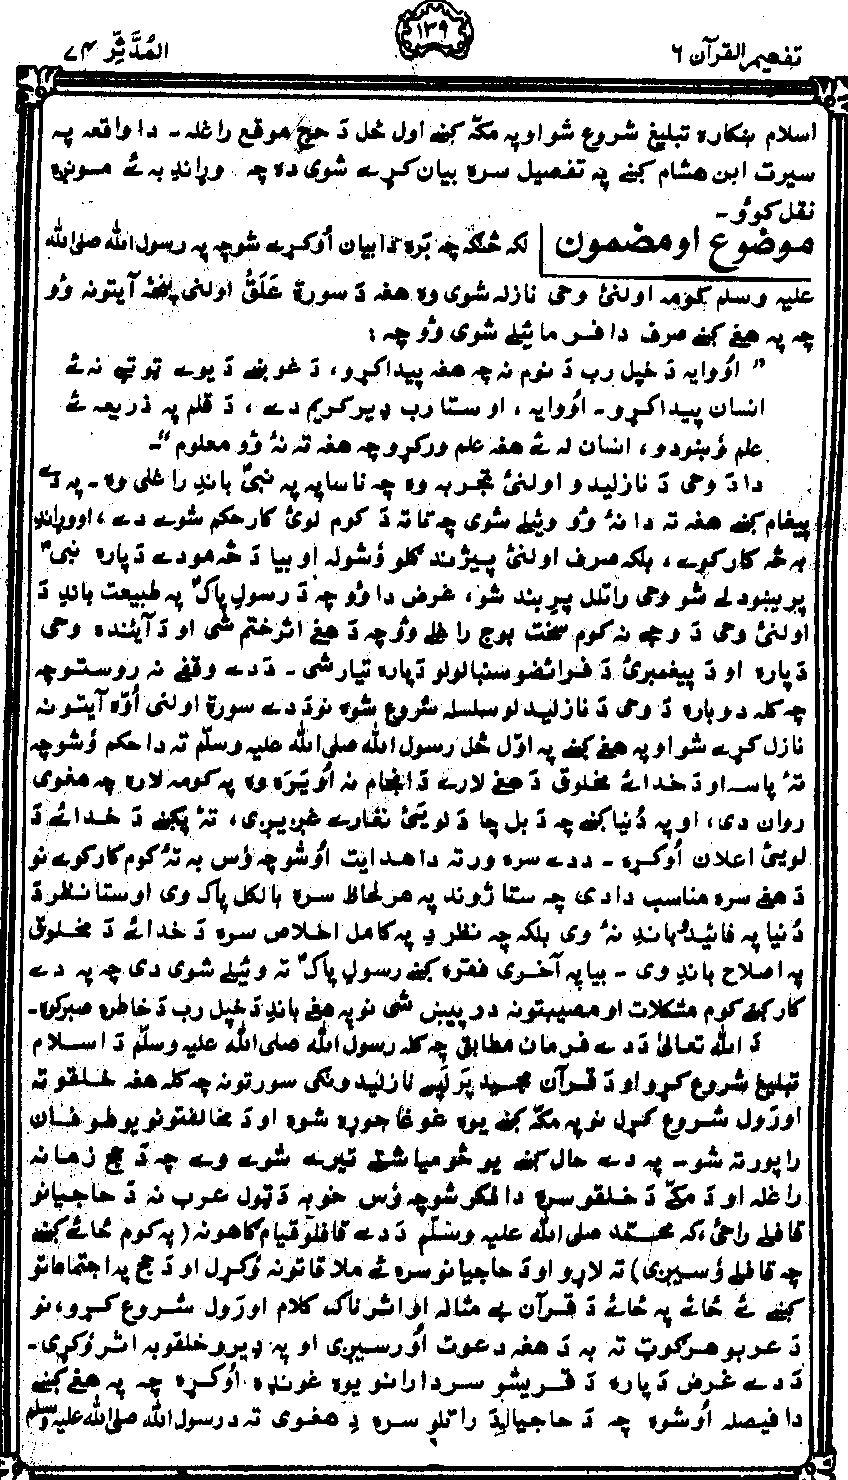 تفهیم القرآن ۶
۱۳۹
المُدَّثِّر ۷۴
اسلام ښکاره تبلیغ شروع شو او په مکّه کښے اول ځل دَ حج موقع راغله۔ دا واقعه په
سیرت ابن هشام کښے په تفصیل سره بیان کړے شوی ده چه وړاندِ به ئے مونږه
نقل کوؤ۔
موضوع او مضمون
لکه څنګه چه بَره دا بیان اُوکړے شو چه په رسول الله صلی الله
علیه وسلم کومه اولنئ وحی نازله شوی وه هغه دَ سورة عَلَقُ اولنی پنځه آیتونه وُو
چه په هغے کښے صرف دا فرمائیلے شوی وُو چه :
” اُووایه دَ خپل رب دَ نوم نه چه هغه پیدا کړو، دَ غوښے دَ یوے ټوټے نه ئے
انسان پیدا کړو۔ اُووایه، او ستا رب ډیر کریم دے، دَ قلم په ذریعه ئے
علم وُښودو، انسان له ئے هغه علم ورکړو چه هغه ته نهٔ وُو معلوم“۔
دا دَ وحی دَ نازلیدو اولنئ تجربه وه چه ناساپه په نبیؐ باندِ راغلی وه۔ په دے
پیغام کښے هغه ته دا نهٔ وُو وئیلے شوی چه تا ته دَ کوم لوئ کار حکم شوے دے، او وړاندِ
به څه کار کوے، بلکه صرف اولنئ پیژندګلو وُشوله او بیا دَ څه مودے دَ پاره نبیؐ
پریښودلے شو وحی راتلل پرې بند شو، غرض دا وُو چه دَ رسولِ پاکؐ په طبیعت باندِ دَ
اولنئ وحی دَ وجے نه کوم سخت بوج راغلے وُو چه دَ هغے اثر ختم شی او دَ آینده وحی
دَپاره او دَ پیغمبرئ دَ فرائضو سنبالولو دَپاره تیار شی۔ دَ دے وقفے نه روستو چه
چه کله دوباره دَ وحی دَ نازلیدلو سلسله شروع شوه نو دَ دے سورة اولنی اُوّهٔ آیتونه
نازل کړے شو او په هغے کښے په اوّل ځل رسول الله صلی الله علیه وسلّم ته دا حکم وُشو چه
تهٔ پاسه او دَ خدائے مخلوق دَ هغے لارے دَ انجام نه اُویَرَه وه په کومه لاره چه هغوی
روان دی، او په دُنیا کښے چه دَ بل چا دَ لویئ نغارے غږیږی، تهٔ پکښے دَ خدائے دَ
لویئ اعلان اُوکړه۔ ددے سره ورته دا هدایت اُوشو چه وُس به تهٔ کوم کار کوے نو
دَ هغے سره مناسب دا دی چه ستا ژوند په هر لحاظ سره بالکل پاک وی او ستا نظر دَ
دُنیا په فائیدُو باندِ نهٔ وی بلکه چه نظر دِ په کامل اخلاص سره دَ خدائے دَ مخلوق
په اصلاح باندِ وی۔ بیا په آخری فقره کښے رسولِ پاکؐ ته وئیلے شوی دی چه په دے
کار کښے کوم مشکلات او مصیبتونه در پیښ شی نو په هغے باندِ دَ خپل رب دَ خاطره صبر کوه۔
دَ الله تعالیٰ دَ دے فرمان مطابق چه کله رسول الله صلی الله علیه وسلّم دَ اسلام
تبلیغ شروع کړو او دَ قرآن مجید پَرلَپسے نازلیدونکی سورتونه چه کله هغه خلقو ته
اورَول شروع کړل نو په مکّه کښے یوه غوغا جوړه شوه او دَ مخالفتونو یو طوفان
راپورته شو۔ په دے حال کښے یو څو میاشتے تیرے شوے وے چه دَ حج زمانه
راغله او دَ مکّے دَ خلقو سره دا فکر شو چه وُس خو به دَ ټول عرب نه دَ حاجیانو
قافلے راځی، که محمّد صلی الله علیه وسلّم دَ دے قافلو قیام ګاهونه (په کوم ځائے کښے
چه قافلے وُسیږی) ته لاړو او دَ حاجیانو سره ئے ملاقاتونه وُکړل او دَ حج په اجتماعاتو
کښے ئے ځائے په ځائے دَ قرآن بے مثاله او اثرناک کلام اورَول شروع کړو، نو
دَ عربو هر ګوټ ته به دَ هغه دعوت اُورسیږی او په ډیرو خلقو به اثر وُکړی۔
دَ دے غرض دَپاره دَ قریشو سردارانو یوه غونډه اُوکړه چه په هغے کښے
دا فیصله اُوشوه چه دَ حاجیانو دَ راتلو سره دِ هغوی ته دَ رسول الله صلی الله علیه وسلم